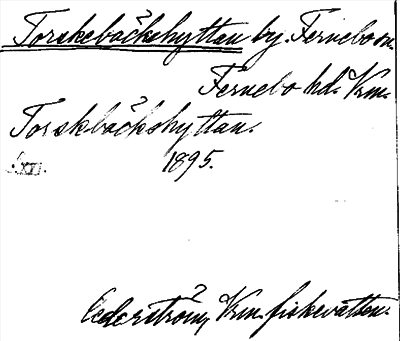 Torskebäckshyttan by. Fernebo sn.
Fernebo hd. Vrm.
Torskbäckshyttan.
XVI. 1895.
Cederström, Vrm. fiskevatten.